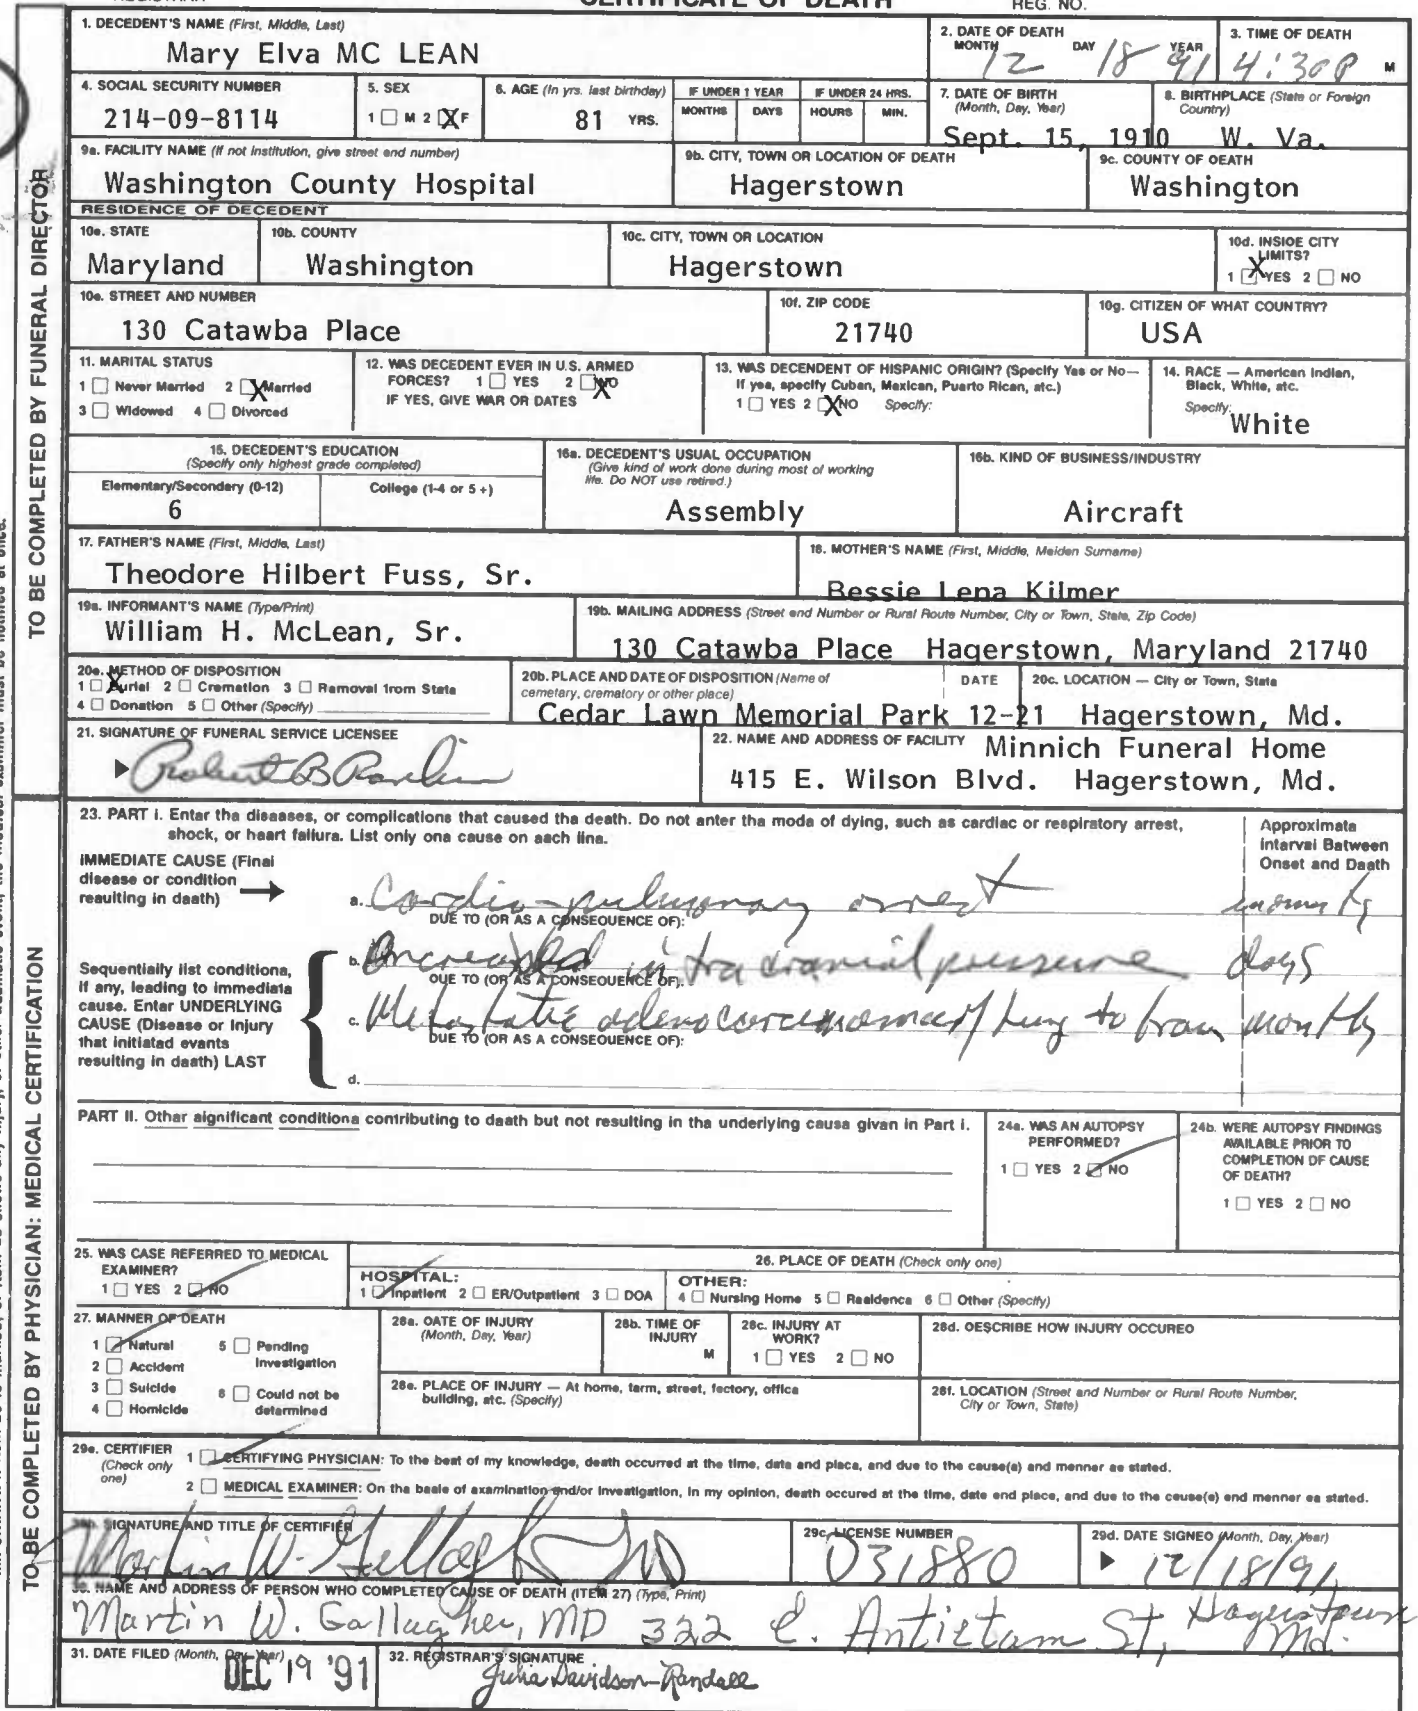 CERTIFICATE OF DEATH
REG. NO.
1. DECEDENT'S NAME (First, Middle, Last)
Mary Elva MC LEAN
2. DATE OF DEATH
MONTH DAY YEAR
12 18 91
3. TIME OF DEATH
4:30P M
4. SOCIAL SECURITY NUMBER
214-09-8114
5. SEX
1 ☐ M 2 ☒ F
6. AGE (In yrs. last birthday)
81 YRS.
IF UNDER 1 YEAR
MONTHS DAYS
IF UNDER 24 HRS.
HOURS MIN.
7. DATE OF BIRTH
(Month, Day, Year)
Sept. 15, 1910
8. BIRTHPLACE (State or Foreign
Country)
W. Va.
9a. FACILITY NAME (If not institution, give street and number)
Washington County Hospital
9b. CITY, TOWN OR LOCATION OF DEATH
Hagerstown
9c. COUNTY OF DEATH
Washington
RESIDENCE OF DECEDENT
10a. STATE
Maryland
10b. COUNTY
Washington
10c. CITY, TOWN OR LOCATION
Hagerstown
10d. INSIDE CITY
LIMITS?
1 ☒ YES 2 ☐ NO
10e. STREET AND NUMBER
130 Catawba Place
10f. ZIP CODE
21740
10g. CITIZEN OF WHAT COUNTRY?
USA
11. MARITAL STATUS
1 ☐ Never Married 2 ☒ Married
3 ☐ Widowed 4 ☐ Divorced
12. WAS DECEDENT EVER IN U.S. ARMED
FORCES? 1 ☐ YES 2 ☒ NO
IF YES, GIVE WAR OR DATES
13. WAS DECENDENT OF HISPANIC ORIGIN? (Specify Yes or No—
If yes, specify Cuban, Mexican, Puerto Rican, etc.)
1 ☐ YES 2 ☒ NO Specify:
14. RACE — American Indian,
Black, White, etc.
Specify:
White
15. DECEDENT'S EDUCATION
(Specify only highest grade completed)
Elementary/Secondary (0-12)
6
College (1-4 or 5+)
16a. DECEDENT'S USUAL OCCUPATION
(Give kind of work done during most of working
life. Do NOT use retired.)
Assembly
16b. KIND OF BUSINESS/INDUSTRY
Aircraft
17. FATHER'S NAME (First, Middle, Last)
Theodore Hilbert Fuss, Sr.
18. MOTHER'S NAME (First, Middle, Maiden Surname)
Bessie Lena Kilmer
19a. INFORMANT'S NAME (Type/Print)
William H. McLean, Sr.
19b. MAILING ADDRESS (Street and Number or Rural Route Number, City or Town, State, Zip Code)
130 Catawba Place Hagerstown, Maryland 21740
20a. METHOD OF DISPOSITION
1 ☒ Burial 2 ☐ Cremation 3 ☐ Removal from State
4 ☐ Donation 5 ☐ Other (Specify)
20b. PLACE AND DATE OF DISPOSITION (Name of
cemetary, crematory or other place)
DATE
Cedar Lawn Memorial Park 12-21
20c. LOCATION — City or Town, State
Hagerstown, Md.
21. SIGNATURE OF FUNERAL SERVICE LICENSEE
22. NAME AND ADDRESS OF FACILITY
Minnich Funeral Home
415 E. Wilson Blvd. Hagerstown, Md.
TO BE COMPLETED BY FUNERAL DIRECTOR
23. PART I. Enter the diseases, or complications that caused the death. Do not enter the mode of dying, such as cardiac or respiratory arrest,
shock, or heart failure. List only one cause on each line.
Approximate
Interval Between
Onset and Death
IMMEDIATE CAUSE (Final
disease or condition
resulting in death)
a. Cardio-pulmonary arrest
DUE TO (OR AS A CONSEQUENCE OF):
Sequentially list conditions,
if any, leading to immediate
cause. Enter UNDERLYING
CAUSE (Disease or injury
that initiated events
resulting in death) LAST
b. Increased intracranial pressure days
DUE TO (OR AS A CONSEQUENCE OF):
c. Metastatic adenocarcinoma of lung to brain months
DUE TO (OR AS A CONSEQUENCE OF):
d.
PART II. Other significant conditions contributing to death but not resulting in the underlying cause given in Part I.
24a. WAS AN AUTOPSY
PERFORMED?
1 ☐ YES 2 ☑ NO
24b. WERE AUTOPSY FINDINGS
AVAILABLE PRIOR TO
COMPLETION OF CAUSE
OF DEATH?
1 ☐ YES 2 ☐ NO
25. WAS CASE REFERRED TO MEDICAL
EXAMINER?
1 ☐ YES 2 ☑ NO
26. PLACE OF DEATH (Check only one)
HOSPITAL:
1 ☑ Inpatient 2 ☐ ER/Outpatient 3 ☐ DOA
OTHER:
4 ☐ Nursing Home 5 ☐ Residence 6 ☐ Other (Specify)
27. MANNER OF DEATH
1 ☑ Natural
2 ☐ Accident
3 ☐ Suicide
4 ☐ Homicide
5 ☐ Pending
Investigation
6 ☐ Could not be
determined
28a. DATE OF INJURY
(Month, Day, Year)
28b. TIME OF
INJURY
M
28c. INJURY AT
WORK?
1 ☐ YES 2 ☐ NO
28d. DESCRIBE HOW INJURY OCCURED
28e. PLACE OF INJURY — At home, farm, street, factory, office
building, etc. (Specify)
28f. LOCATION (Street and Number or Rural Route Number,
City or Town, State)
29a. CERTIFIER
(Check only
one)
1 ☑ CERTIFYING PHYSICIAN: To the best of my knowledge, death occurred at the time, date and place, and due to the cause(s) and manner as stated.
2 ☐ MEDICAL EXAMINER: On the basis of examination and/or investigation, in my opinion, death occured at the time, date and place, and due to the cause(s) and manner as stated.
29b. SIGNATURE AND TITLE OF CERTIFIER
Martin W. Gallagher MD
29c. LICENSE NUMBER
D31880
29d. DATE SIGNED (Month, Day, Year)
12/18/91
30. NAME AND ADDRESS OF PERSON WHO COMPLETED CAUSE OF DEATH (ITEM 27) (Type, Print)
Martin W. Gallagher, MD 322 E. Antietam St, Hagerstown Md.
31. DATE FILED (Month, Day, Year)
DEC 19 '91
32. REGISTRAR'S SIGNATURE
Julia Davidson-Randall
TO BE COMPLETED BY PHYSICIAN: MEDICAL CERTIFICATION